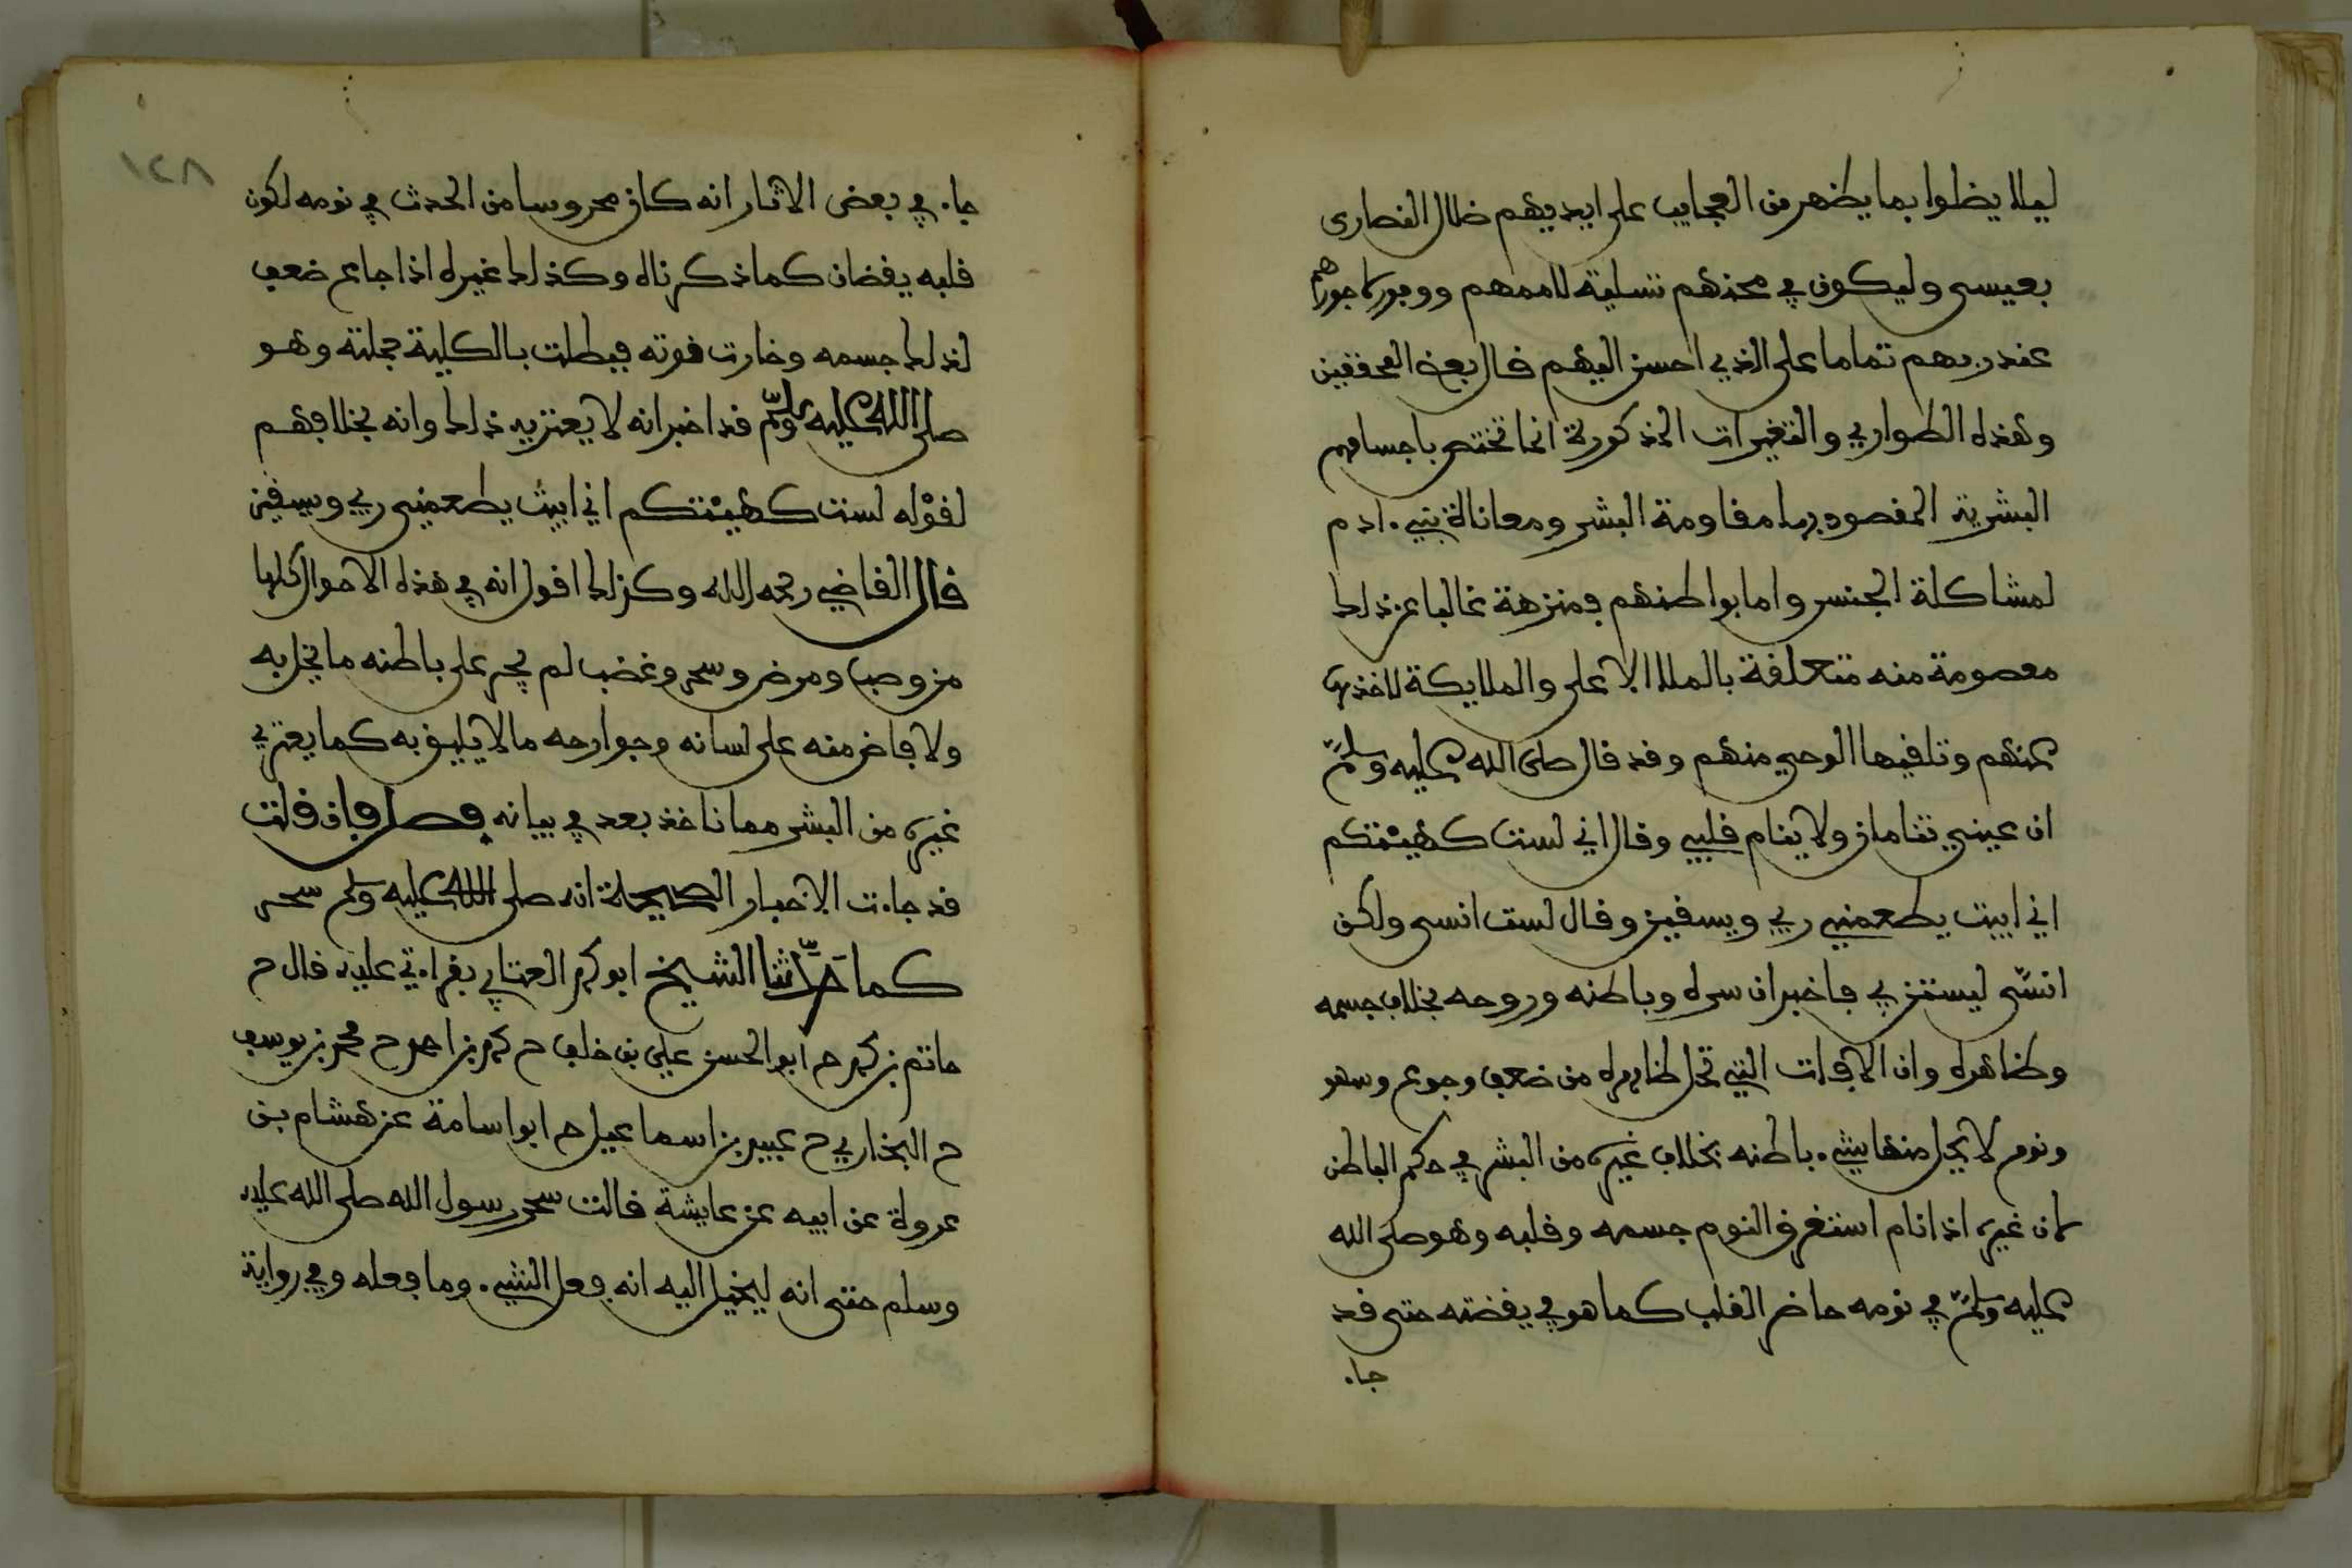 ليلا يضلوا بما يظهر من العجايب على ايديهم ضلال النصارى
بعيسى وليكون في محنهم تسلية لاممهم ووفور لاجورهم
عند ربهم تماما على الذي احسن اليهم قال بعض المحققين
وهذه الطواري والتغيرات المذكورة انما تختص باجسامهم
البشرية المقصود بها مقاومة البشر ومعاناة بني ادم
لمشاكلة الجنس واما بواطنهم فمنزهة غالبا عن ذلك
معصومة منه متعلقة بالملا الاعلى والملايكة لاخذها
عنهم وتلقيها الوحي منهم وقد قال صلى الله عليه وسلم
ان عيني تنامان ولا ينام قلبي وقال اني لست كهيئتكم
اني ابيت يطعمني ربي ويسقين وقال لست انسى ولكن
انسّى ليستن بي فاخبر ان سره وباطنه وروحه بخلاف جسمه
وظاهره وان الافات التي تحل ظاهره من ضعف وجوع وسهر
ونوم لا يحل منها شيء باطنه بخلاف غيره من البشر في حكم الباطن
لان غيره اذا نام استغرق النوم جسمه وقلبه وهو صلى الله
عليه وسلم في نومه حاضر القلب كما هو في يقضته حتى قد
جاء
١٢٨
جاء في بعض الاثار انه كان محروسا من الحدث في نومه لكون
قلبه يقضان كما ذكرناه وكذلك غيره اذا جاع ضعف
لذلك جسمه وخارت قوته فبطلت بالكلية جملته وهو
صلى الله عليه وسلم قد اخبر انه لا يعتريه ذلك وانه بخلافهم
لقوله لست كهيئتكم اني ابيت يطعمني ربي ويسقين
قال القاضي رحمه الله وكذلك اقول انه في هذه الاحوال كلها
من وصب ومرض وسحر وغضب لم يجر على باطنه ما يخل به
ولا فاض منه على لسانه وجوارحه ما لا يليق به كما يعتري
غيره من البشر مما ناخذ بعد في بيانه فصل فان قلت
قد جاءت الاخبار الصحيحة انه صلى الله عليه وسلم سحر
كما حدّثنا الشيخ ابو محمد العتابي بقراءتي عليه قال ح
حاتم بن محمد ح ابو الحسن علي بن خلف ح محمد بن احمد ح محمد بن يوسف
ح البخاري ح عبيد بن اسماعيل ح ابو اسامة عن هشام بن
عروة عن ابيه عن عايشة قالت سحر رسول الله صلى الله عليه
وسلم حتى انه ليخيل اليه انه فعل الشيء وما فعله وفي رواية